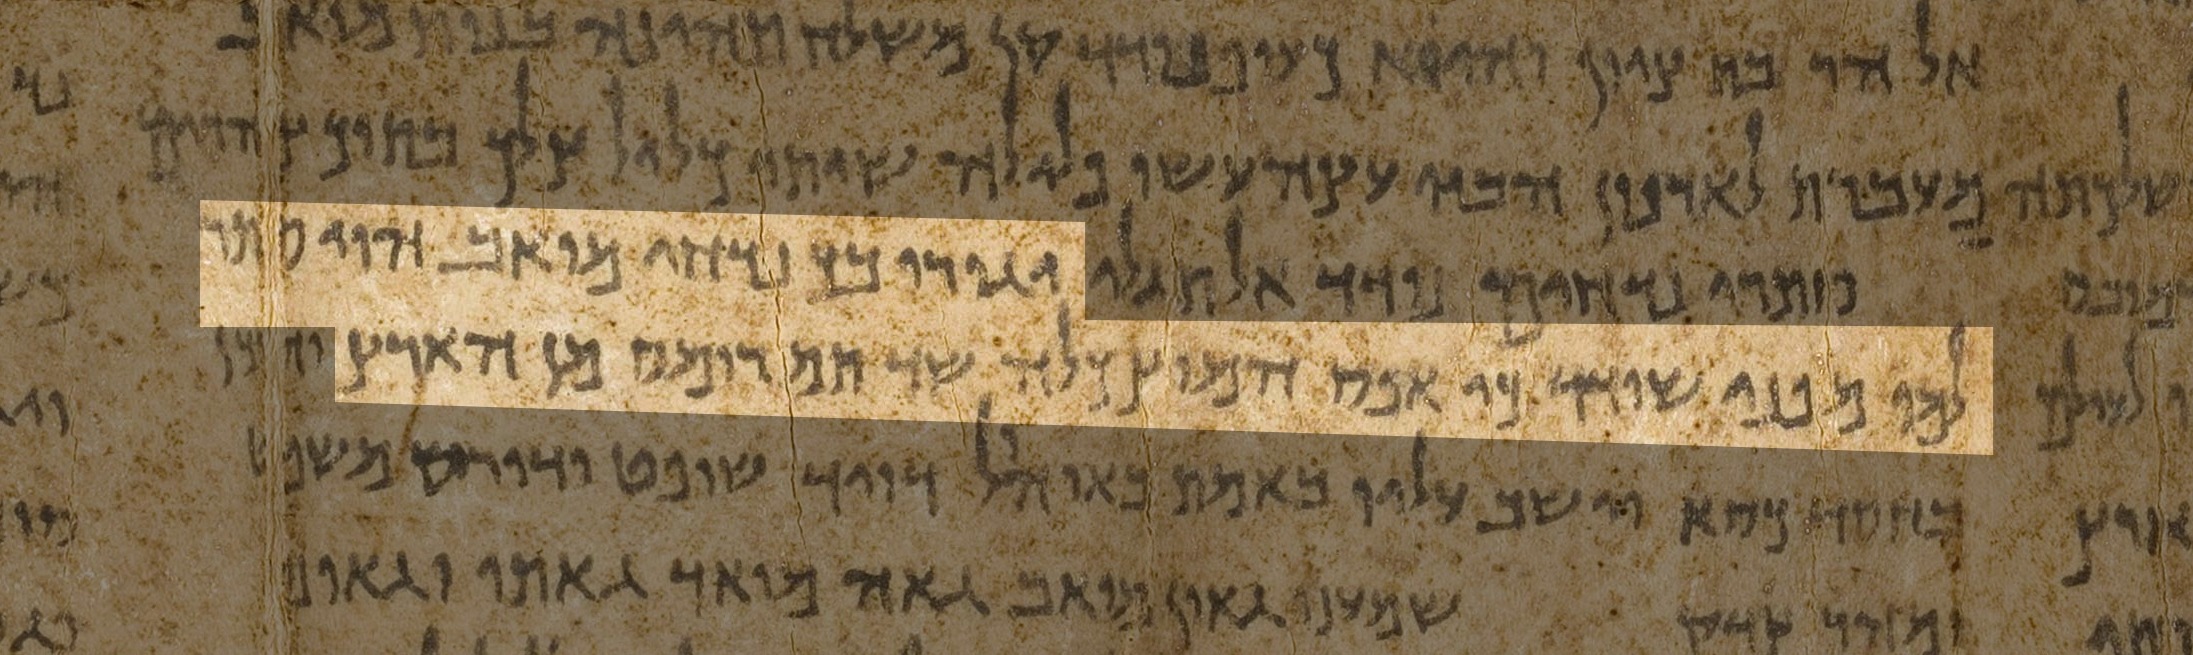 אל הר בת ציון והיהא כעוף נודד קן משלח תהיינה בנות מואב
מעברת לארנון הביו עצה עשו פלילה שיתי כליל צלך בתוך צהורים
סתרי נדחים נודד אל תגלי יגורו בך נדחי מואב הוי סתר
למו מפני שודד כי אפס המוץ כלה שד תמ רומס מן הארץ והכן
בחסד כסא וישב עליו באמת באוהל דויד שופט ודורש משפט
ומהר צדק שמענו גאון מואב גאה מואד גאותו וגאונו